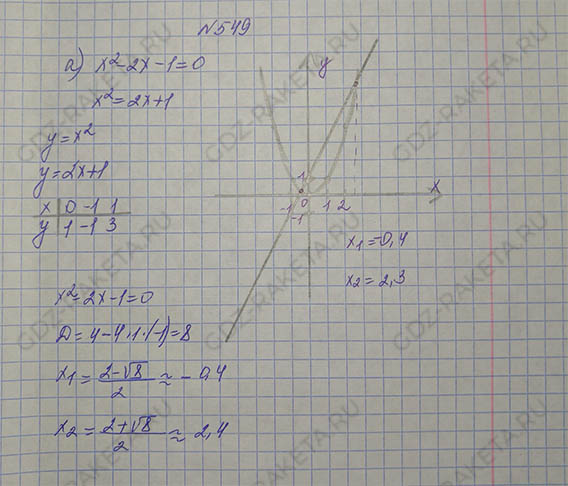 N549
а) x²-2x-1=0
x²=2x+1
y=x²
y=2x+1
x 0 -1 1
y 1 -1 3
y
x
1
-1 0 1 2
-1
x1=-0,4
x2=2,3
x²=2x-1=0
D=4-4·1·(-1)=8
x1=2-√8/2≈-0,4
x2=2+√8/2≈2,4
GDZ-RAKETA.RU